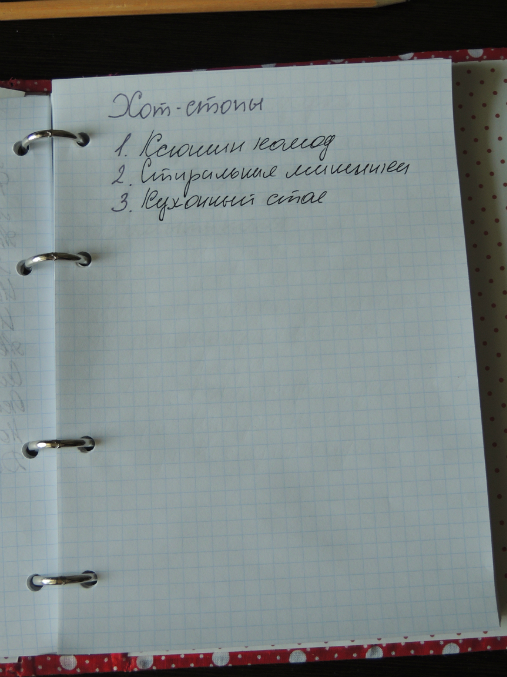 Хот-споты
1. Ксюшин комод
2. Стиральная машинка
3. Кухонный стол